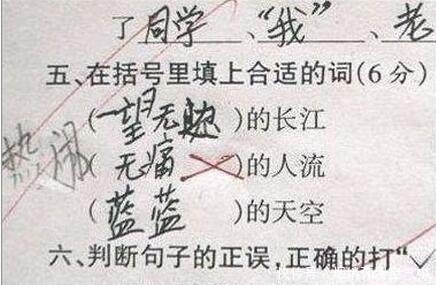 了同学、“我”、老
五、在括号里填上合适的词(6分)
(一望无际)的长江
热闹
(无痛)的人流
(蓝蓝)的天空
六、判断句子的正误,正确的打“✓